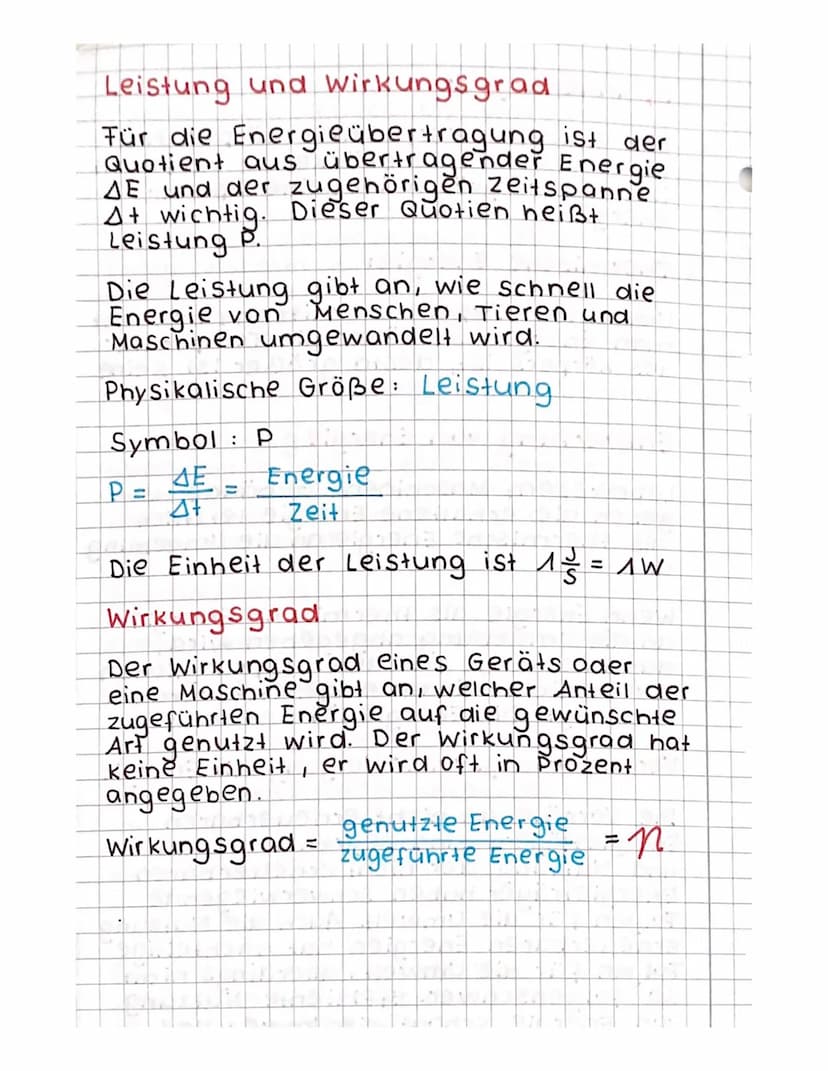 Leistung und Wirkungsgrad
Für die Energieübertragung ist der
Quotient aus übertragender Energie
ΔE und der zugehörigen Zeitspanne
Δt wichtig. Dieser Quotien heißt
Leistung P.
Die Leistung gibt an, wie schnell die
Energie von Menschen, Tieren und
Maschinen umgewandelt wird.
Physikalische Größe: Leistung
Symbol: P
P = ΔE/Δt = Energie/Zeit
Die Einheit der Leistung ist 1 J/s = 1W
Wirkungsgrad
Der Wirkungsgrad eines Geräts oder
eine Maschine gibt an, welcher Anteil der
zugeführten Energie auf die gewünschte
Art genutzt wird. Der Wirkungsgrad hat
keine Einheit, er wird oft in Prozent
angegeben.
Wirkungsgrad = genutzte Energie/zugeführte Energie = n